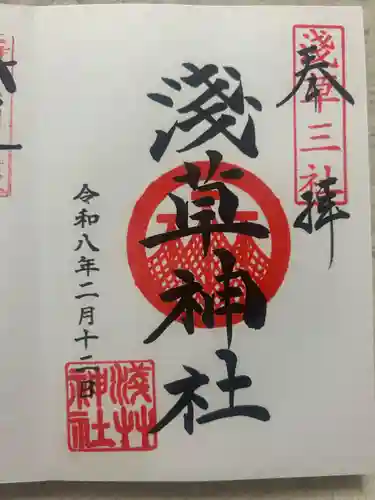 奉拝
淺草三社
淺草神社
令和八年二月十二日
淺艸神社